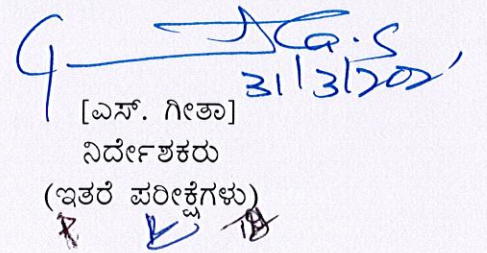 31/3/2021
[ಎಸ್. ಗೀತಾ]
ನಿರ್ದೇಶಕರು
(ಇತರೆ ಪರೀಕ್ಷೆಗಳು)